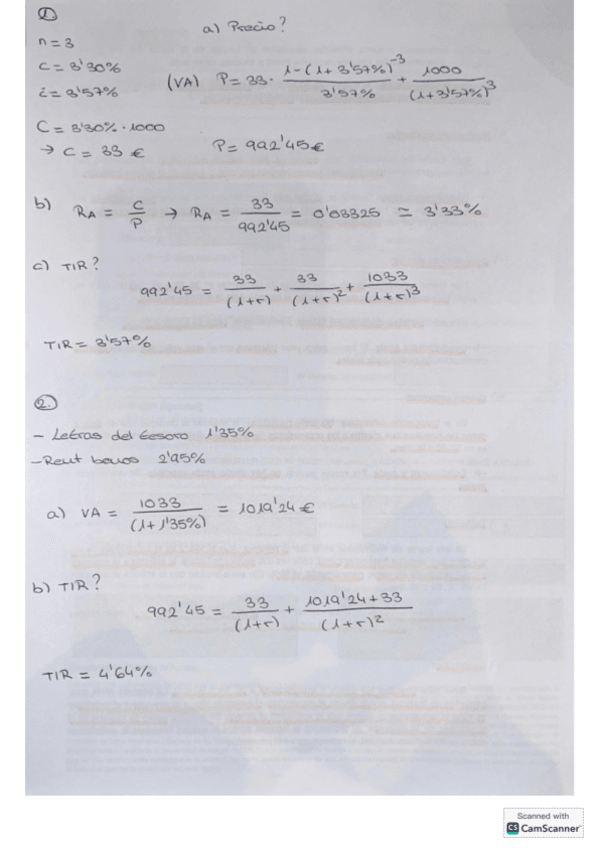 ①
a) Precio?
n = 3
c = 3'30%
i = 3'57%
(VA) P = 33 · 1-(1+3'57%)^-3 / 3'57% + 1000 / (1+3'57%)^3
C = 3'30% · 1000
→ C = 33 €
P = 992'45€
b) RA = C/P → RA = 33/992'45 = 0'03325 ≃ 3'33%
c) TIR?
992'45 = 33/(1+r) + 33/(1+r)^2 + 1033/(1+r)^3
TIR = 3'57%
②.
- Letras del tesoro 1'35%
- Rent bonos 2'95%
a) VA = 1033/(1+1'35%) = 1019'24 €
b) TIR?
992'45 = 33/(1+r) + 1019'24+33/(1+r)^2
TIR = 4'64%
Scanned with
CS CamScanner